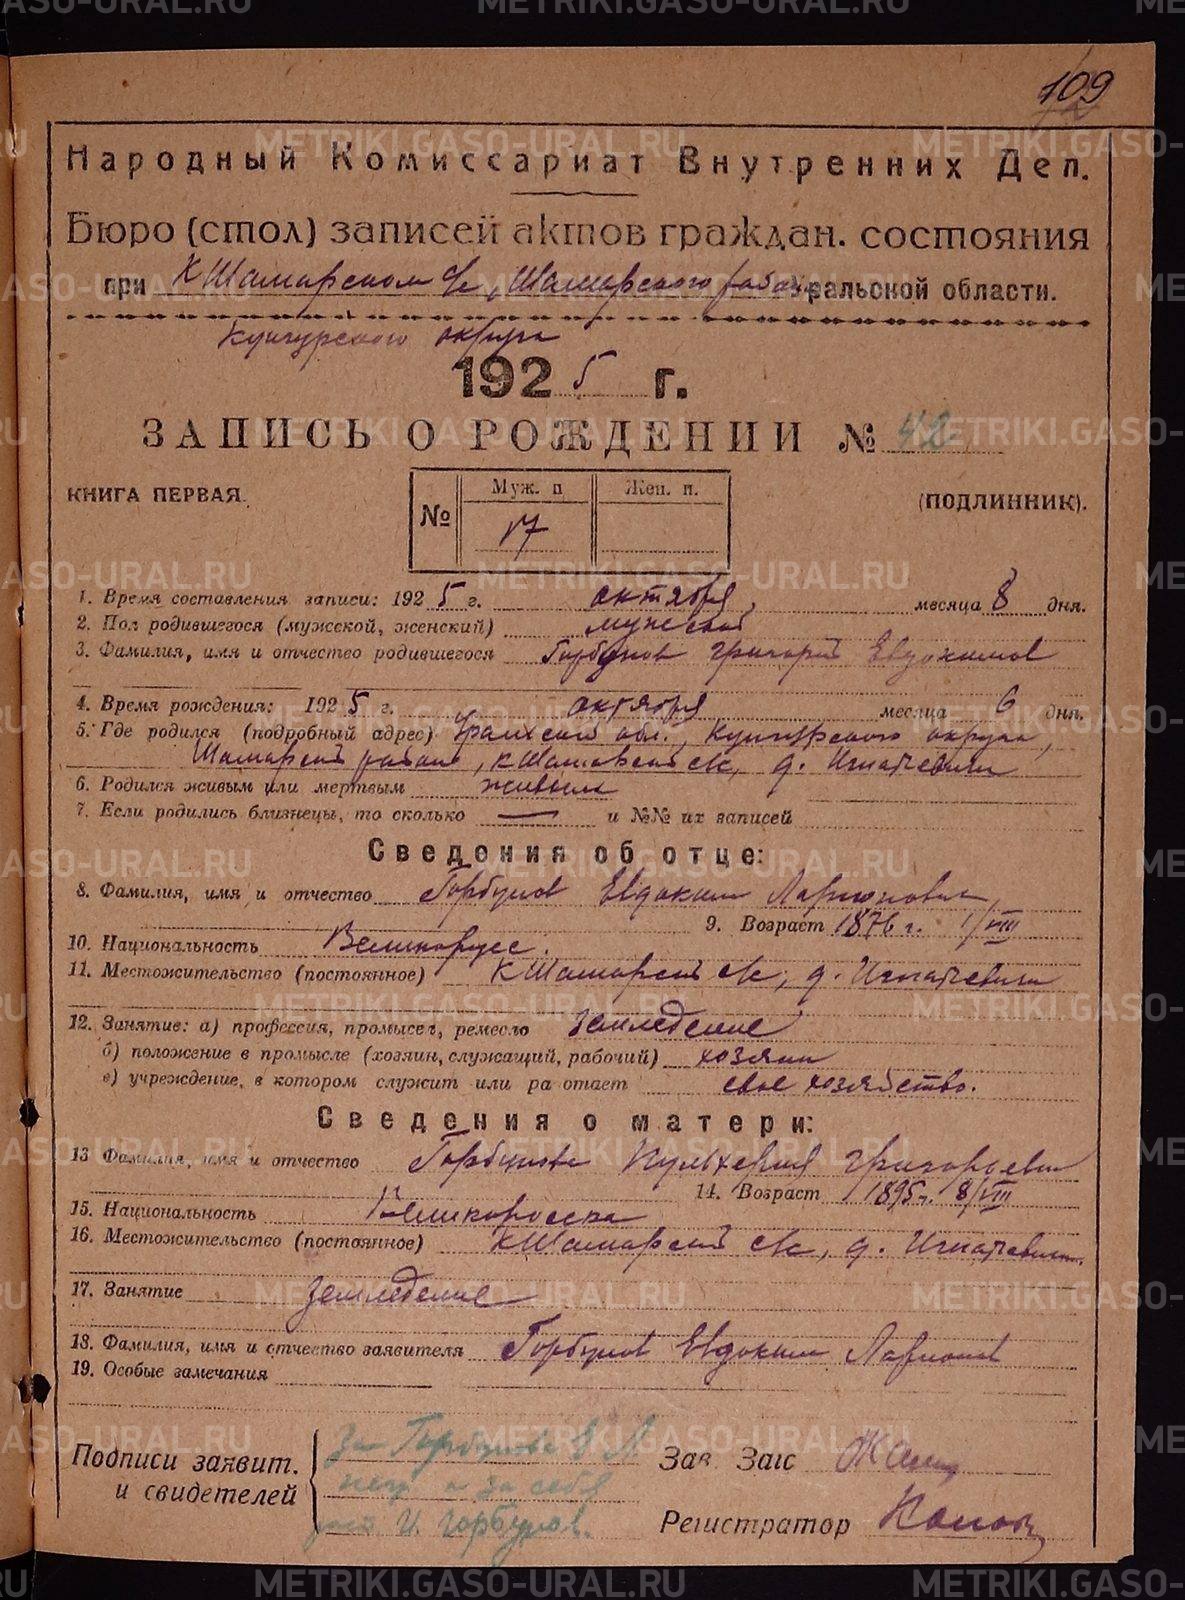 109
Народный Комиссариат Внутренних Дел.
Бюро (стол) записей актов граждан. состояния
при К Шамарском с/с, Шамарского района Уральской области.
Кунгурского округа
1925 г.
ЗАПИСЬ О РОЖДЕНИИ № 42
КНИГА ПЕРВАЯ. (ПОДЛИННИК).
№ Муж. п Жен. п.
17
1. Время составления записи: 1925 г. октября, месяца 8 дня.
2. Пол родившегося (мужской, женский) мужской
3. Фамилия, имя и отчество родившегося Горбунов Григорий Евдокимов
4. Время рождения: 1925 г. октября месяца 6 дня.
5. Где родился (подробный адрес) Уральской обл., Кунгурского округа,
Шамарский район, д. Игнатевичи
6. Родился живым или мертвым живым
7. Если родились близнецы, то сколько — и №№ их записей
Сведения об отце:
8. Фамилия, имя и отчество Горбунов Евдоким Ларионович
9. Возраст 1876 г. 1/VIII
10. Национальность Великорусс.
11. Местожительство (постоянное) К Шамарский с/с, д. Игнатевичи
12. Занятие: а) профессия, промысел, ремесло земледелие
б) положение в промысле (хозяин, служащий, рабочий) хозяин
в) учреждение, в котором служит или ра отает свое хозяйство.
Сведения о матери:
13 Фамилия, имя и отчество Горбунова Пульхерия Григорьевна
14. Возраст 1895 г. 8/VIII
15. Национальность Великоросска
16. Местожительство (постоянное) К Шамарский с/с, д. Игнатевичи
17. Занятие Земледелие
18. Фамилия, имя и отчество заявителя Горбунов Евдоким Ларионов
19. Особые замечания
Подписи заявит. и свидетелей
За Горбунова Е Л
негр и за себя
И. Горбунов.
Зав. Загс
Регистратор
METRIKI.GASO-URAL.RU